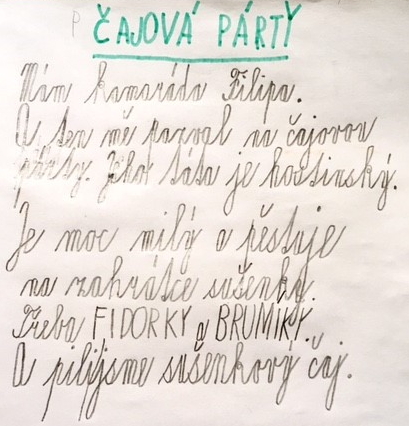 P ČAJOVÁ PÁRTY
Mám kamaráda Filipa.
A ten mě pozval na čajovou
párty. Jeho táta je hostinský.
Je moc milý a pěstuje
na zahrátce sušenky.
Třeba FIDORKY a BRUMÍKY.
A pilijsme sušenkový čaj.